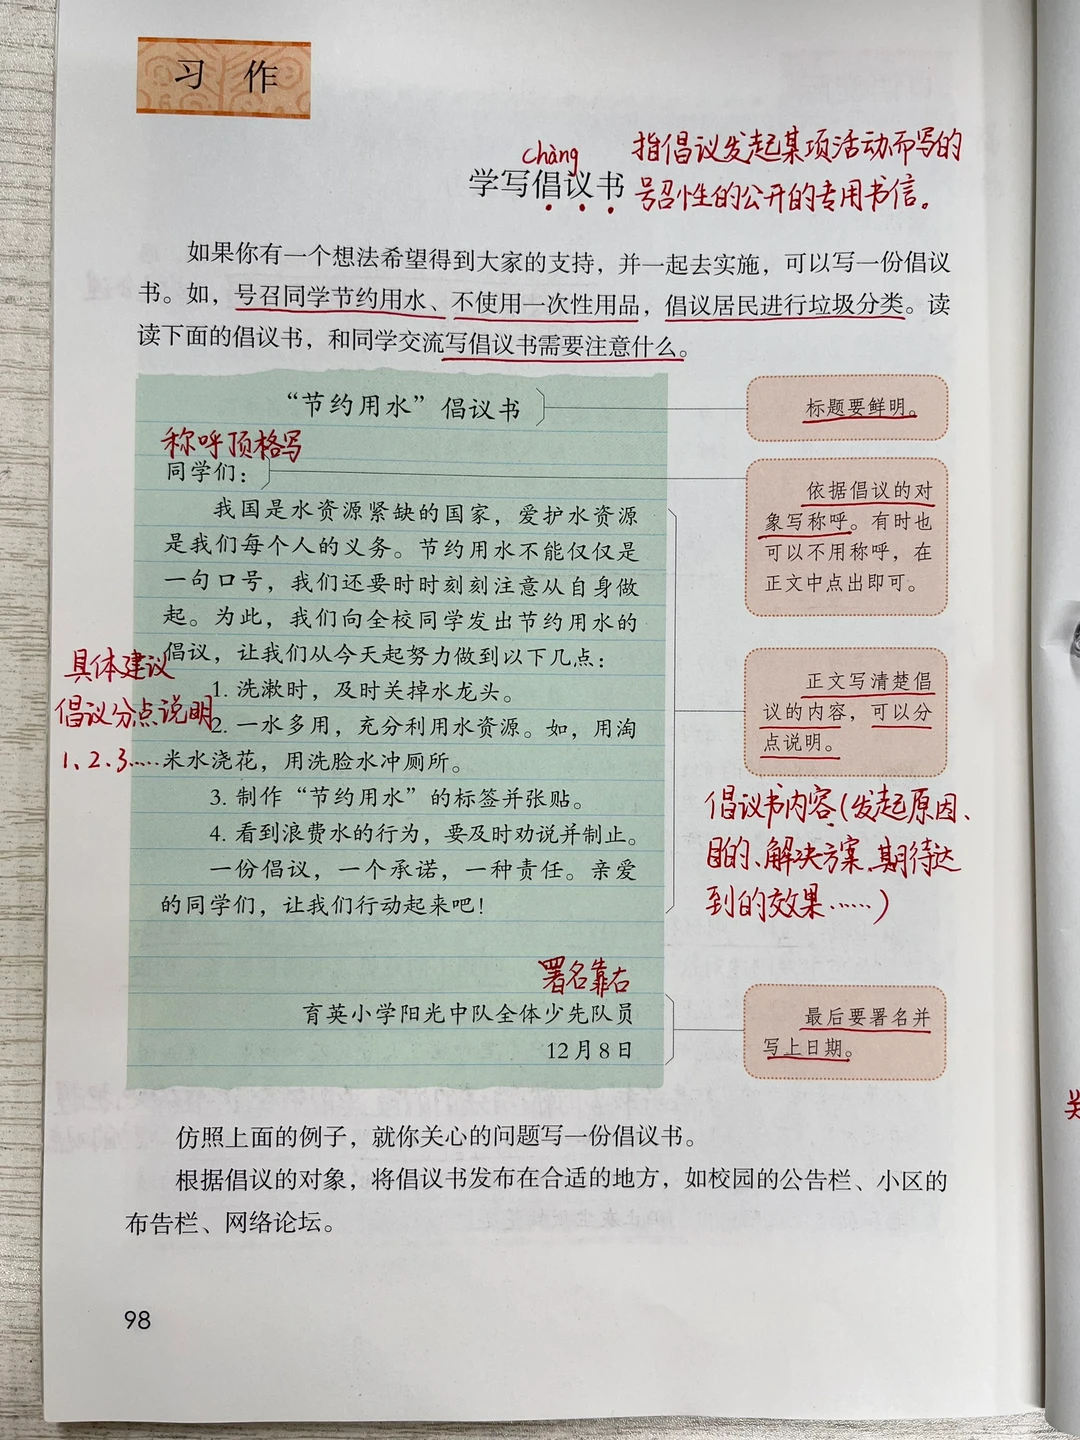 习 作
chàng
学写倡议书
指倡议发起某项活动而写的
号召性的公开的专用书信。
如果你有一个想法希望得到大家的支持，并一起去实施，可以写一份倡议
书。如，号召同学节约用水、不使用一次性用品，倡议居民进行垃圾分类。读
读下面的倡议书，和同学交流写倡议书需要注意什么。
“节约用水”倡议书
标题要鲜明。
称呼顶格写
同学们：
依据倡议的对
象写称呼。有时也
可以不用称呼，在
正文中点出即可。
我国是水资源紧缺的国家，爱护水资源
是我们每个人的义务。节约用水不能仅仅是
一句口号，我们还要时时刻刻注意从自身做
起。为此，我们向全校同学发出节约用水的
倡议，让我们从今天起努力做到以下几点：
具体建议
倡议分点说明
1、2、3……
1. 洗漱时，及时关掉水龙头。
2. 一水多用，充分利用水资源。如，用淘
米水浇花，用洗脸水冲厕所。
3. 制作“节约用水”的标签并张贴。
4. 看到浪费水的行为，要及时劝说并制止。
一份倡议，一个承诺，一种责任。亲爱
的同学们，让我们行动起来吧！
正文写清楚倡
议的内容，可以分
点说明。
倡议书内容（发起原因、
目的、解决方案、期待达
到的效果……）
署名靠右
育英小学阳光中队全体少先队员
12月8日
最后要署名并
写上日期。
仿照上面的例子，就你关心的问题写一份倡议书。
根据倡议的对象，将倡议书发布在合适的地方，如校园的公告栏、小区的
布告栏、网络论坛。
98